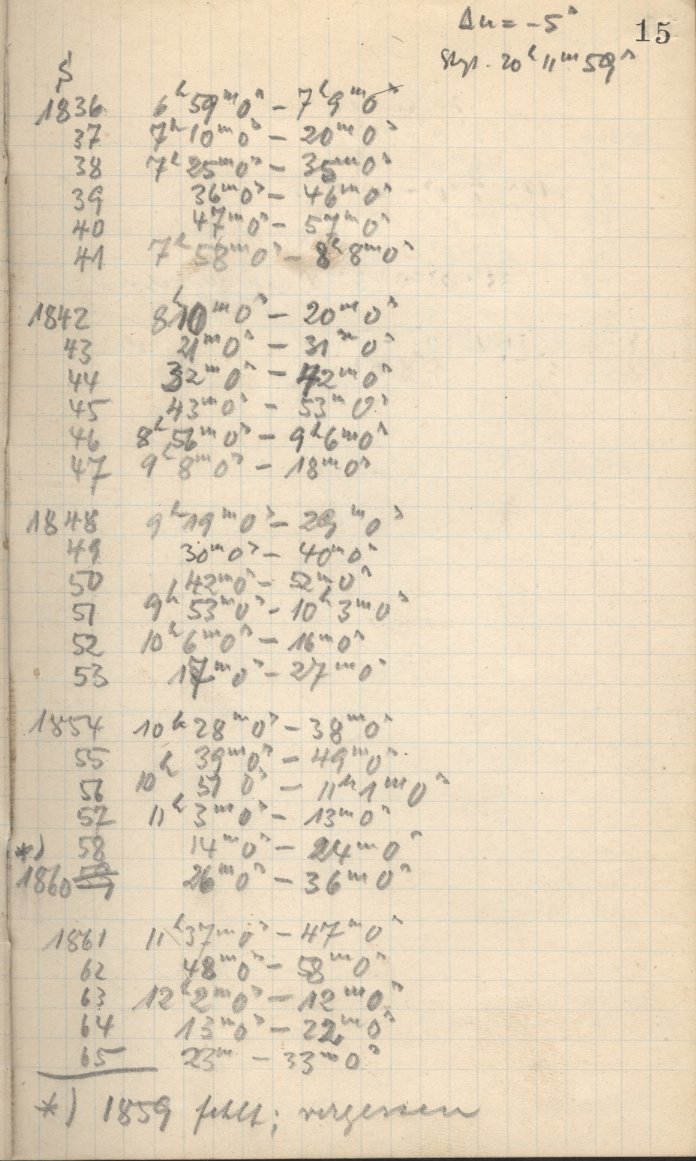 Δu = -5ˢ 15
20ʰ 11ᵐ 59ˢ
S
1836 6ʰ 59ᵐ 0ˢ – 7ʰ 9ᵐ 0ˢ
37 7ʰ 10ᵐ 0ˢ – 20ᵐ 0ˢ
38 7ʰ 25ᵐ 0ˢ – 35ᵐ 0ˢ
39 36ᵐ 0ˢ – 46ᵐ 0ˢ
40 47ᵐ 0ˢ – 57ᵐ 0ˢ
41 7ʰ 58ᵐ 0ˢ – 8ʰ 8ᵐ 0ˢ
1842 8ʰ 10ᵐ 0ˢ – 20ᵐ 0ˢ
43 21ᵐ 0ˢ – 31ᵐ 0ˢ
44 32ᵐ 0ˢ – 42ᵐ 0ˢ
45 43ᵐ 0ˢ – 53ᵐ 0ˢ
46 8ʰ 56ᵐ 0ˢ – 9ʰ 6ᵐ 0ˢ
47 9ʰ 8ᵐ 0ˢ – 18ᵐ 0ˢ
1848 9ʰ 19ᵐ 0ˢ – 29ᵐ 0ˢ
49 30ᵐ 0ˢ – 40ᵐ 0ˢ
50 42ᵐ 0ˢ – 52ᵐ 0ˢ
51 9ʰ 53ᵐ 0ˢ – 10ʰ 3ᵐ 0ˢ
52 10ʰ 6ᵐ 0ˢ – 16ᵐ 0ˢ
53 17ᵐ 0ˢ – 27ᵐ 0ˢ
1854 10ʰ 28ᵐ 0ˢ – 38ᵐ 0ˢ
55 ʰ 39ᵐ 0ˢ – 49ᵐ 0ˢ
56 10 51 0ˢ – 11ʰ 1ᵐ 0ˢ
57 11ʰ 3ᵐ 0ˢ – 13ᵐ 0ˢ
*) 58 14ᵐ 0ˢ – 24ᵐ 0ˢ
1860 59 26ᵐ 0ˢ – 36ᵐ 0ˢ
1861 11ʰ 37ᵐ 0ˢ – 47ᵐ 0ˢ
62 48ᵐ 0ˢ – 58ᵐ 0ˢ
63 12ʰ 2ᵐ 0ˢ – 12ᵐ 0ˢ
64 13ᵐ 0ˢ – 22ᵐ 0ˢ
65 23ᵐ – 33ᵐ 0ˢ
*) 1859 fehlt; vergessen